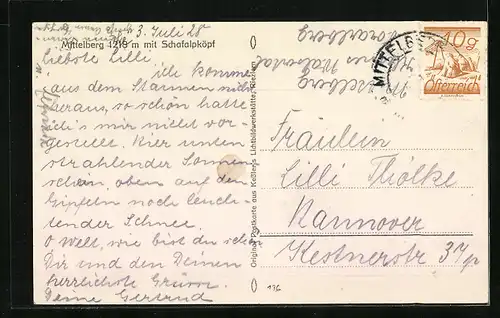 3. Juli 28
Mittelberg 1218 m mit Schafalpköpf
Liebste Lilli,
ich komme
aus dem Staunen nicht
heraus, so schön hatte
ich's mir nicht vor-
gestellt. Hier unten
strahlender Sonnen
schein, oben auf den
Gipfeln noch leuch-
tender Schnee.
O Welt, wie bist du schön
Dir und den Deinen
herrlichste Grüsse
Deine Gertrud
Original Postkarte aus Keßlers Lichtbildwerkstätte, Riezlern
136
MITTELBERG
10 g
Österreich
Mittelberg
Walsertal
Vorarlberg
Fräulein
Lilli Thölke
Hannover
Kestnerstr 37p